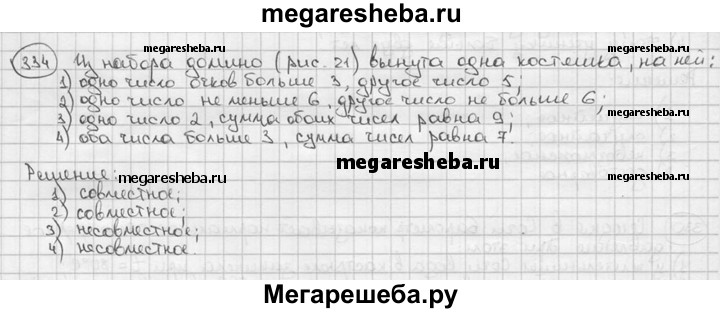 megaresheba.ru
334 Из набора домино (рис. 21) вынута одна костешка, на ней:
megaresheba.ru megaresheba.ru
1) одно число очков больше 3, другое число 5;
2) одно число не меньше 6, другое число не больше 6;
3) одно число 2, сумма обоих чисел равна 9;
4) оба числа больше 3, сумма чисел равна 7.
megaresheba.ru
Решение:
megaresheba.ru megaresheba.ru
1) совместное;
2) совместное;
3) несовместное;
4) несовместное.
Мегарешеба.ру